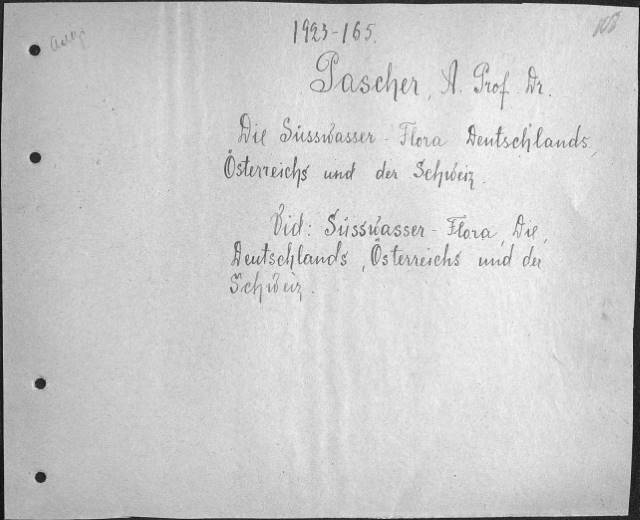 1923-165.
Pascher, A. Prof. Dr.
Die Süsswasser-Flora Deutschlands,
Österreichs und der Schweiz.
Vid: Süsswasser-Flora, Die,
Deutschlands, Österreichs und der
Schweiz.